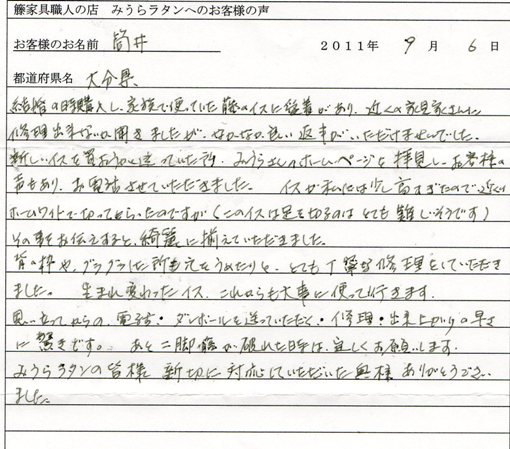 籐家具職人の店 みうらラタンへのお客様の声
お客様のお名前 筒井 2011年 9月 6日
都道府県名 大分県
結婚の時購入し、家族で使っていた籐のイスに愛着があり、近くの家具家さんに
修理出来ないか聞きましたが、なかなか良い返事がいただけませんでした。
新しいイスを買おうかと迷っていた所、みうらさんのホームページを拝見し、お客様の
声もあり、お電話させていただきました。 イスが私には少し高すぎたので近くの
ホームワイドで切ってもらったのですが(このイスは足を切るのはとても難しいそうです)
その事をお伝えすると、綺麗に揃えていただきました。
背の枠や、グラグラした所も穴をうめたりと、とても丁寧な修理をしていただき
ました。 生まれ変わったイス、これからも大事に使って行きます。
思い立ってからの、電話・ダンボールを送っていただく・修理・出来上がりの早さ
に驚きです。 あと二脚籐が破れた時は、宜しくお願いします。
みうらラタンの皆様 新切に対応していただいた奥様 ありがとうござい
ました。